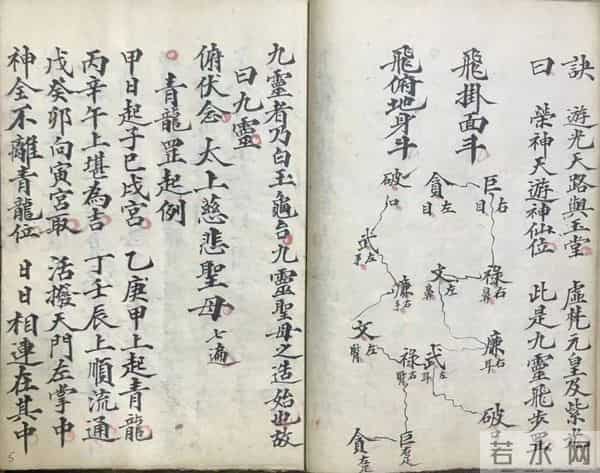 訣 遊光天路與玉堂 虛梵元皇及紫
曰 榮神天遊神仙位 此是九靈飛步
飛掛面斗
飛俯地身斗
巨右目
貪左目
祿右鼻
文左鼻
廉右耳
武左耳
破
破口
武左手
廉右手
文左腎
祿右腎
巨右足
貪左足
九靈者乃白玉龜台九靈聖母之造始也故
曰九靈
俯伏念 太上慈悲聖母 七遍
青龍罡起例
甲日起子巳戌宮 乙庚甲上起青龍
丙辛午上堪為吉 丁壬辰上順流通
戊癸卯向寅宮取 活撥天門左掌中
神全不離青龍位 日日相連在其中
5
若水网